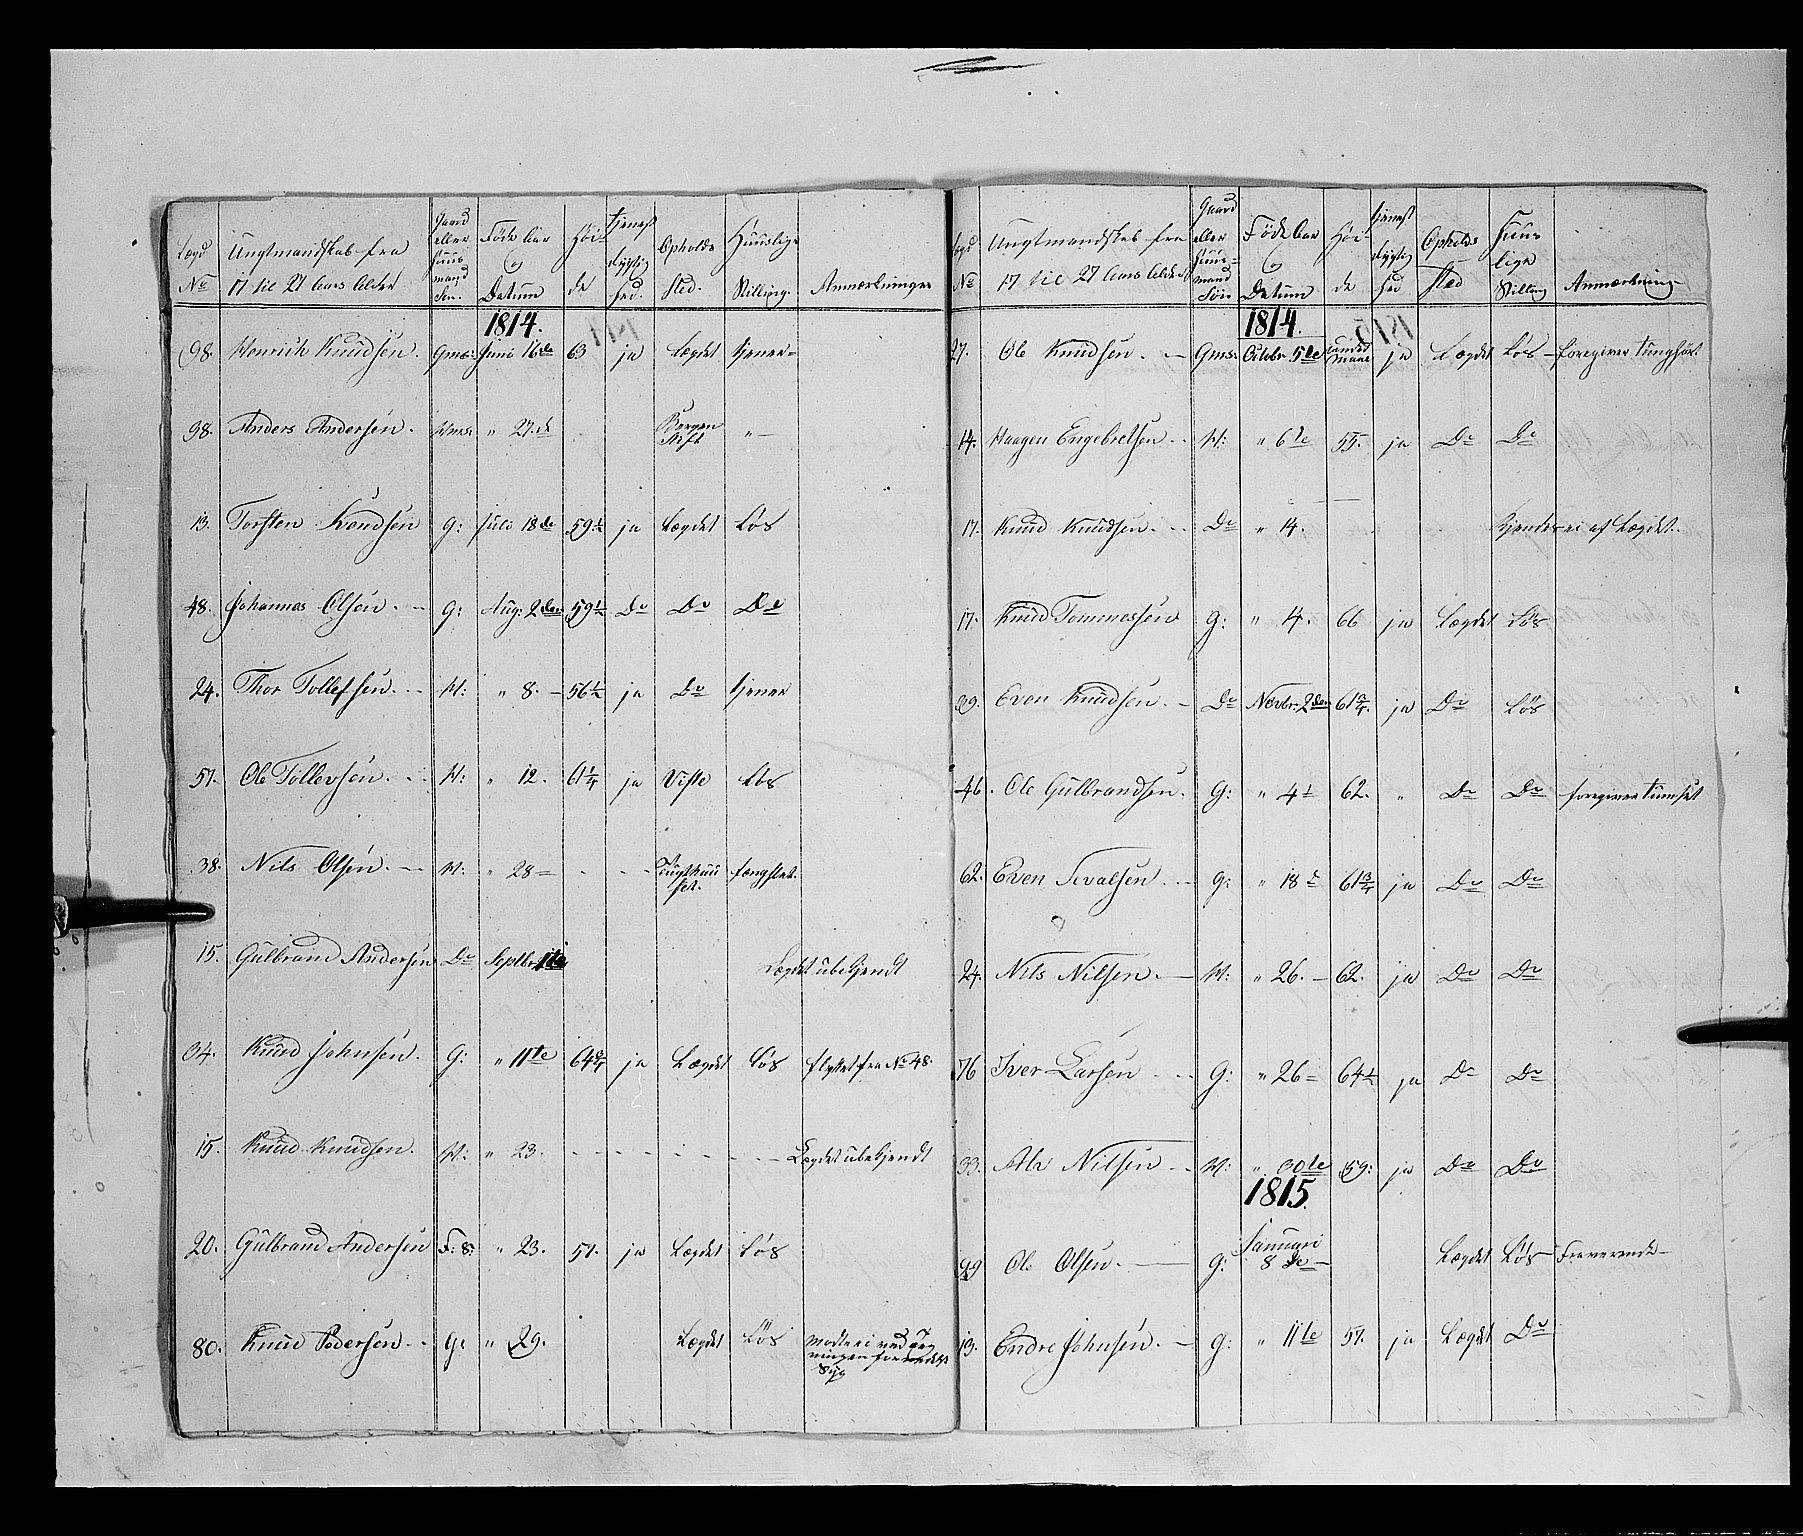 Lægd No | Ungtmandskab fra 17 til 27 Aars Alder | Gaard eller Huusmand Søn. | Føde Aar og Datum | Høide | tjenestdygtighed. | Opholds sted. | Huuslige Stilling. | Anmærkninger
1814.
98. Henrich Knudsen. Gms: Juni 16de 63 ja Lægdet tjener
98. Anders Andersen. Hms: " 27.de Bergen Stift " —
13. Torsten Knudsen G: Juli 18de 59½ ja Lægdet Løs
48. Johannes Olsen. G: Aug: 2den 59½ Do Do Do
24. Thor Tollefsen. H: " 8. 56½ ja Do tjener
57. Ole Tollevsen. H: " 12. 61¼ ja Løs
38. Nils Olsen. H: " 28 Tugthuset. fængslet.
15. Gulbrand Andersen Do Septbr 1te Lægdet ubekjendt
34. Knud Johnsen. G: " 11te 64¾ ja Lægdet Løs flyttet fra No 48.
15. Knud Knudsen. H: " 23. Lægdet ubekjendt
20. Gulbrand Andersen F: S: " 23. 57. ja Lægdet Løs
80. Knud Pedersen. G: " 29. Lægdet Løs
Syg
Lægd No | Ungtmandskab fra 17 til 27 Aars Alder | Gaard eller Huusmand Søn | Føde Aar og Datum | Høide | tjenestdygtighed | Opholds sted | Huuslige Stilling | Anmærkning
1814.
27. Ole Knudsen. Gms: Octbr 5te under Maal ja Lægdet Løs foregiver tunghørt
14. Haagen Engebretsen. H: " 6te 55. ja Do Do
17. Knud Knudsen. Do " 14. kjendes ei af Lægdet.
17. Knud Tommessen G: " 14. 66 ja Lægdet Løs
39. Even Knudsen. Do Novbr 2den 61¾ ja Do Løs
46. Ole Gulbrandsen. G: " 4 62. " Do Do foregiver
62. Even Sevalsen. G: " 18 61¾ ja Do Do
24. Nils Nilsen. H: " 26. 62. ja Do Do
76 Iver Larsen G: " 26 64½ ja Do Do
33. Atle Nilsen H: " 30te 59: ja Do Do
1815.
99 Ole Olsen. G: Januari 8de Lægdet Løs Fraverende
13. Endre Johnsen. G: " 11te 57. ja Lægdet Do